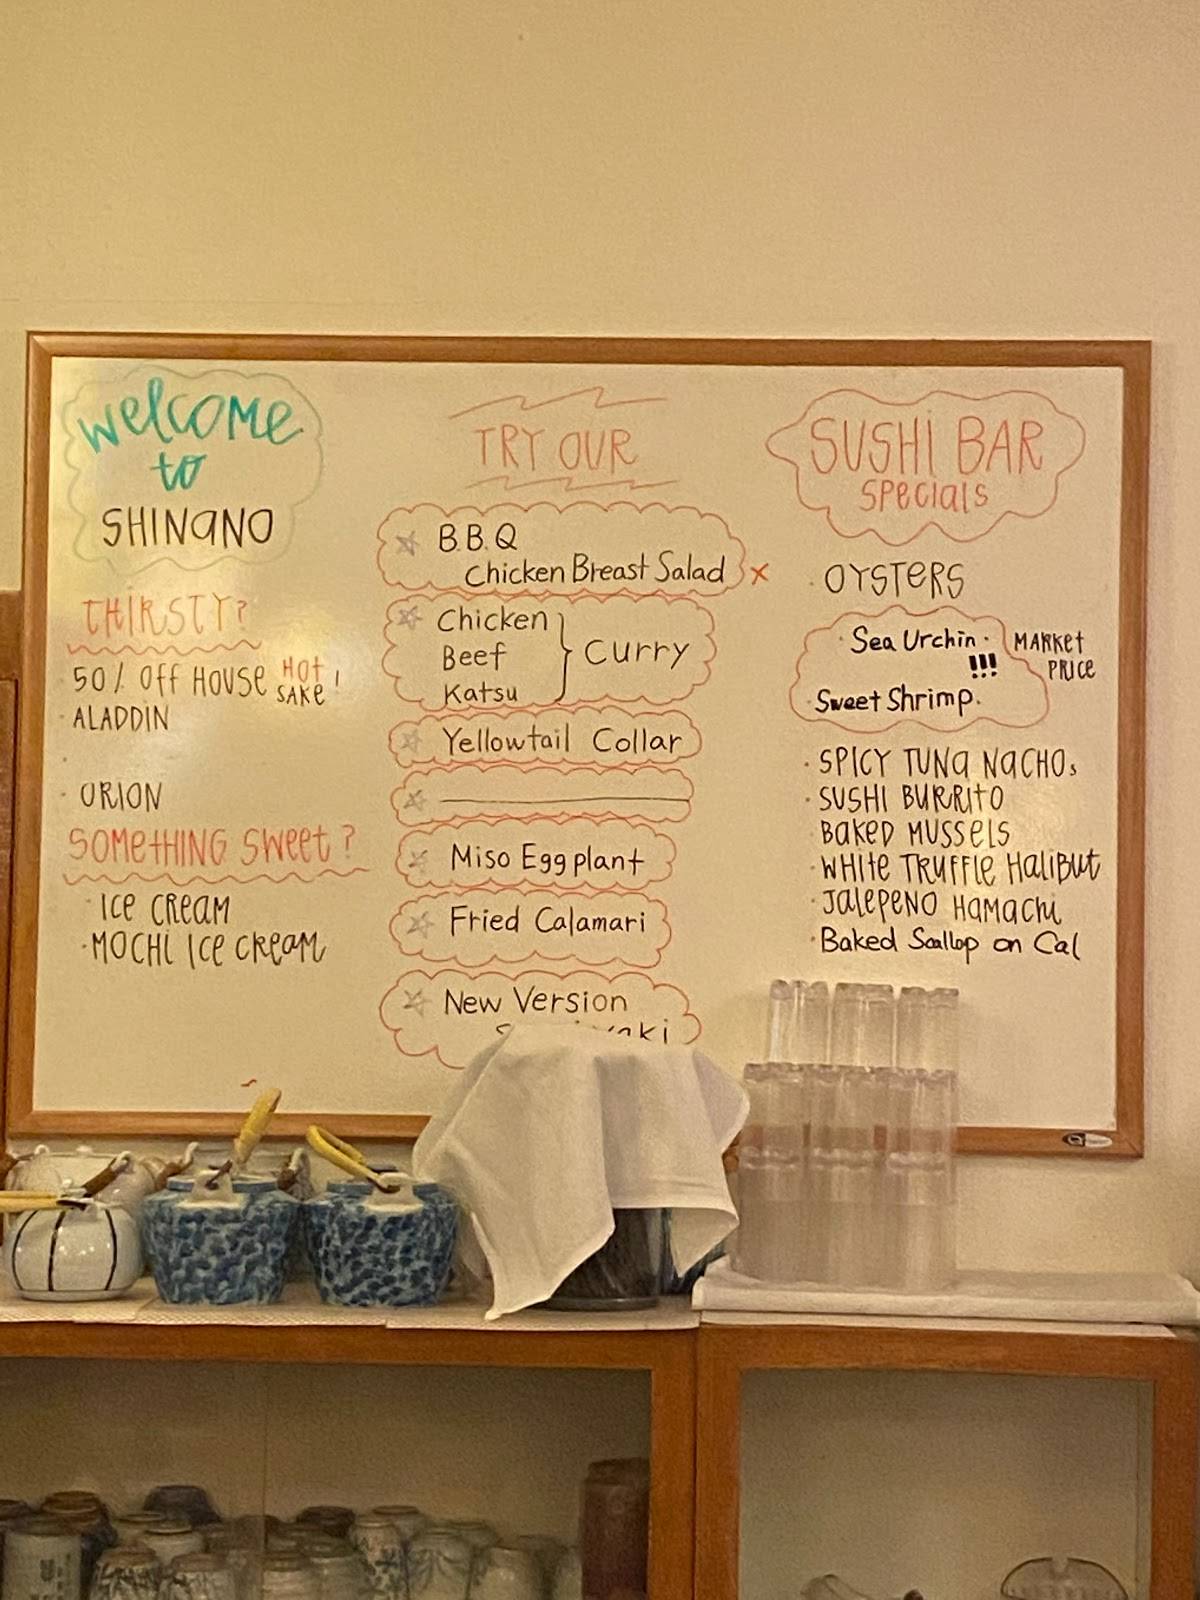 Welcome
to
SHINANO
THIRSTY?
50% OFF HOUSE HOT SAKE!
ALADDIN
ORION
SOMETHING SWEET?
ICE CREAM
MOCHI ICE CREAM
TRY OUR
B.B.Q
Chicken Breast Salad X
Chicken
Beef
Katsu
Curry
Yellowtail Collar
Miso Eggplant
Fried Calamari
New Version
SUSHI BAR
SPECIALS
OYSTERS
Sea Urchin
!!!
Sweet Shrimp
MARKET
PRICE
SPICY TUNA NACHOS
SUSHI BURRITO
BAKED MUSSELS
WHITE TRUFFLE HALIBUT
JALEPENO HAMACHI
Baked Scallop on Cal